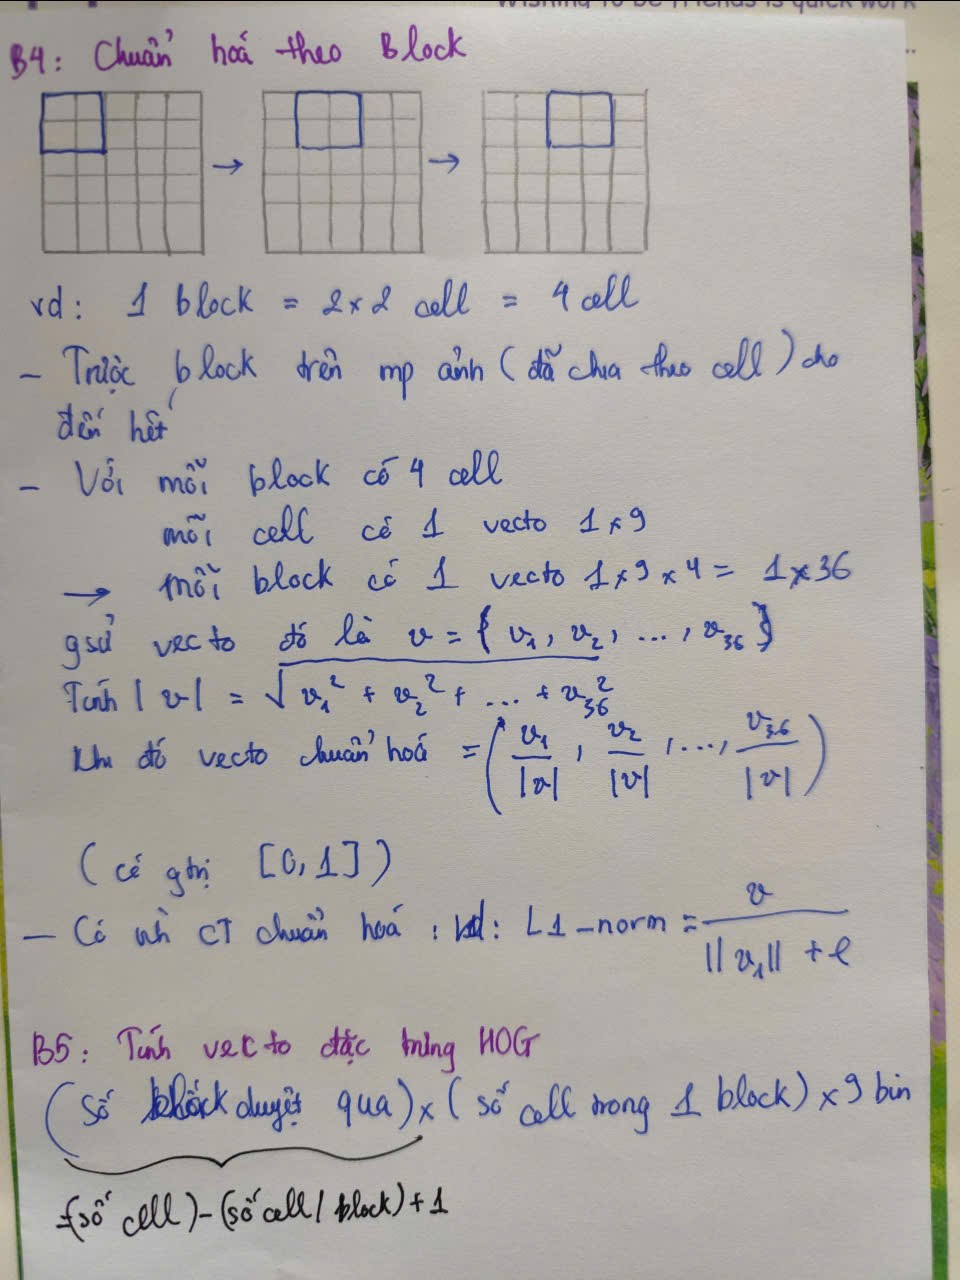 B4: Chuẩn hoá theo Block
vd: 1 block = 2×2 cell = 4 cell
- Trượt block trên mp ảnh (đã chia theo cell) cho
đến hết
- Với mỗi block có 4 cell
mỗi cell có 1 vecto 1×9
→ mỗi block có 1 vecto 1×9×4 = 1×36
gsử vecto đó là v = { v₁, v₂, ..., v₃₆ }
Tính |v| = √(v₁² + v₂² + ... + v₃₆²)
Khi đó vecto chuẩn hoá = (v₁/|v|, v₂/|v|, ..., v₃₆/|v|)
(có gtrị [0,1])
- Có nh CT chuẩn hoá: vd: L1-norm = v/(||v₁|| + e)
B5: Tính vecto đặc trưng HOG
(Số block duyệt qua) × (số cell trong 1 block) × 9 bin
=(số cell) - (số cell/block) + 1